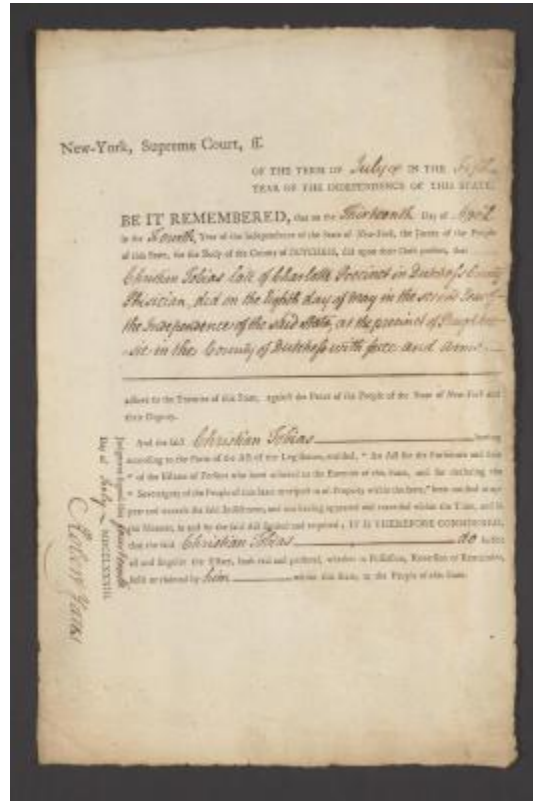 New-York, Supreme Court, ss.
OF THE TERM OF July IN THE Fifth
YEAR OF THE INDEPENDENCE OF THIS STATE.
BE IT REMEMBERED, that on the Thirteenth Day of April
in the Fourth Year of the Independence of the State of New-York, the Jurors of the People
of this State, for the Body of the County of DUTCHESS, did upon their Oath present, that
Christian Tobias late of Charlotte Precinct in Dutchess County
Phisician, did on the Eighth day of May in the second Year of
the Independence of the said State, at the precinct of Poughkeep
-sie in the County of Dutchess with force and arms
adhere to the Enemies of this State, against the Peace of the People of the State of New-York and
their Dignity.
And the said Christian Tobias having
according to the Form of the Act of our Legislature, entitled, "An Act for the Forfeiture and Sale
"of the Estates of Persons who have adhered to the Enemies of this State, and for declaring the
"Sovereignty of the People of this State in respect to all Property within the same," been notified to ap-
pear and traverse the said Indictment, and not having appeared and traversed within the Time, and in
the Manner, in and by the said Act limited and required; IT IS THEREFORE CONSIDERED,
that the said Christian Tobias do forfeit
all and singular the Estate, both real and personal, whether in Possession, Reversion or Remainder,
held or claimed by him within this State, to the People of this State.
Judgment signed this fourteenth
Day of July MDCCLXXXIII.
Robert Yates